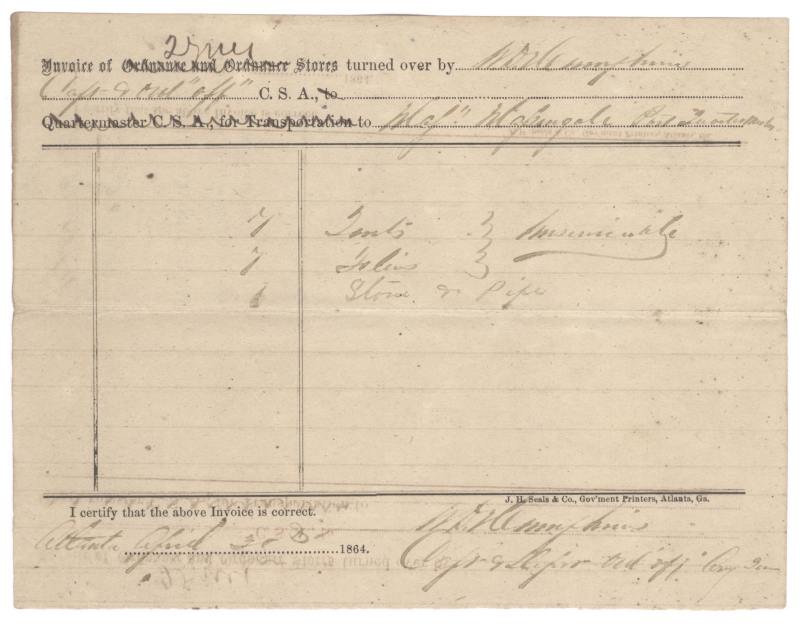 2 Mr
Invoice of Ordnance and Ordnance Stores turned over by W W Humphries
Capt & Ord "off" C. S. A., to
Quartermaster C. S. A., for Transportation to Maj" Masengale Post Quartermaster
7 Tents } Unserviceable
7 Flies }
1 Stove & Pipe
J. H. Seals & Co., Gov'ment Printers, Atlanta, Ga.
I certify that the above Invoice is correct.
Humphries
Atlanta April 1864.
Capt & Ord off